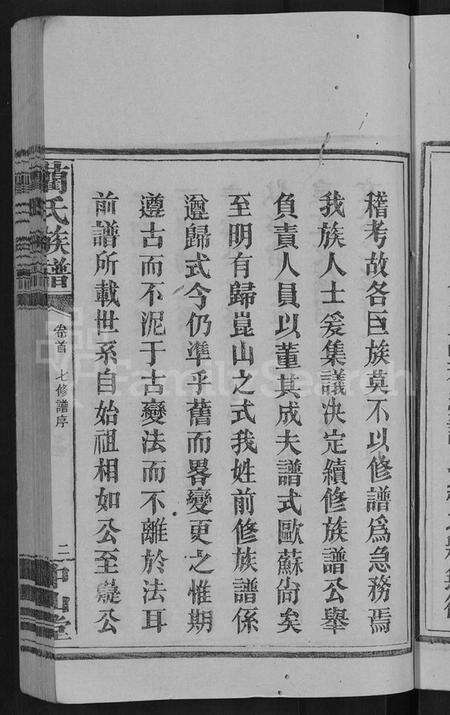 稽考故各巨族莫不以修譜爲急務焉
我族人士爰集議決定續修族譜公舉
負責人員以董其成夫譜式歐蘇尙矣
至明有歸崑山之式我姓前修族譜係
遵歸式今仍準乎舊而畧變更之惟期
遵古而不泥于古變法而不離於法耳
前譜所載世系自始祖相如公至㠇公
藺氏族譜
卷首
七修譜序
二
FamilySearch